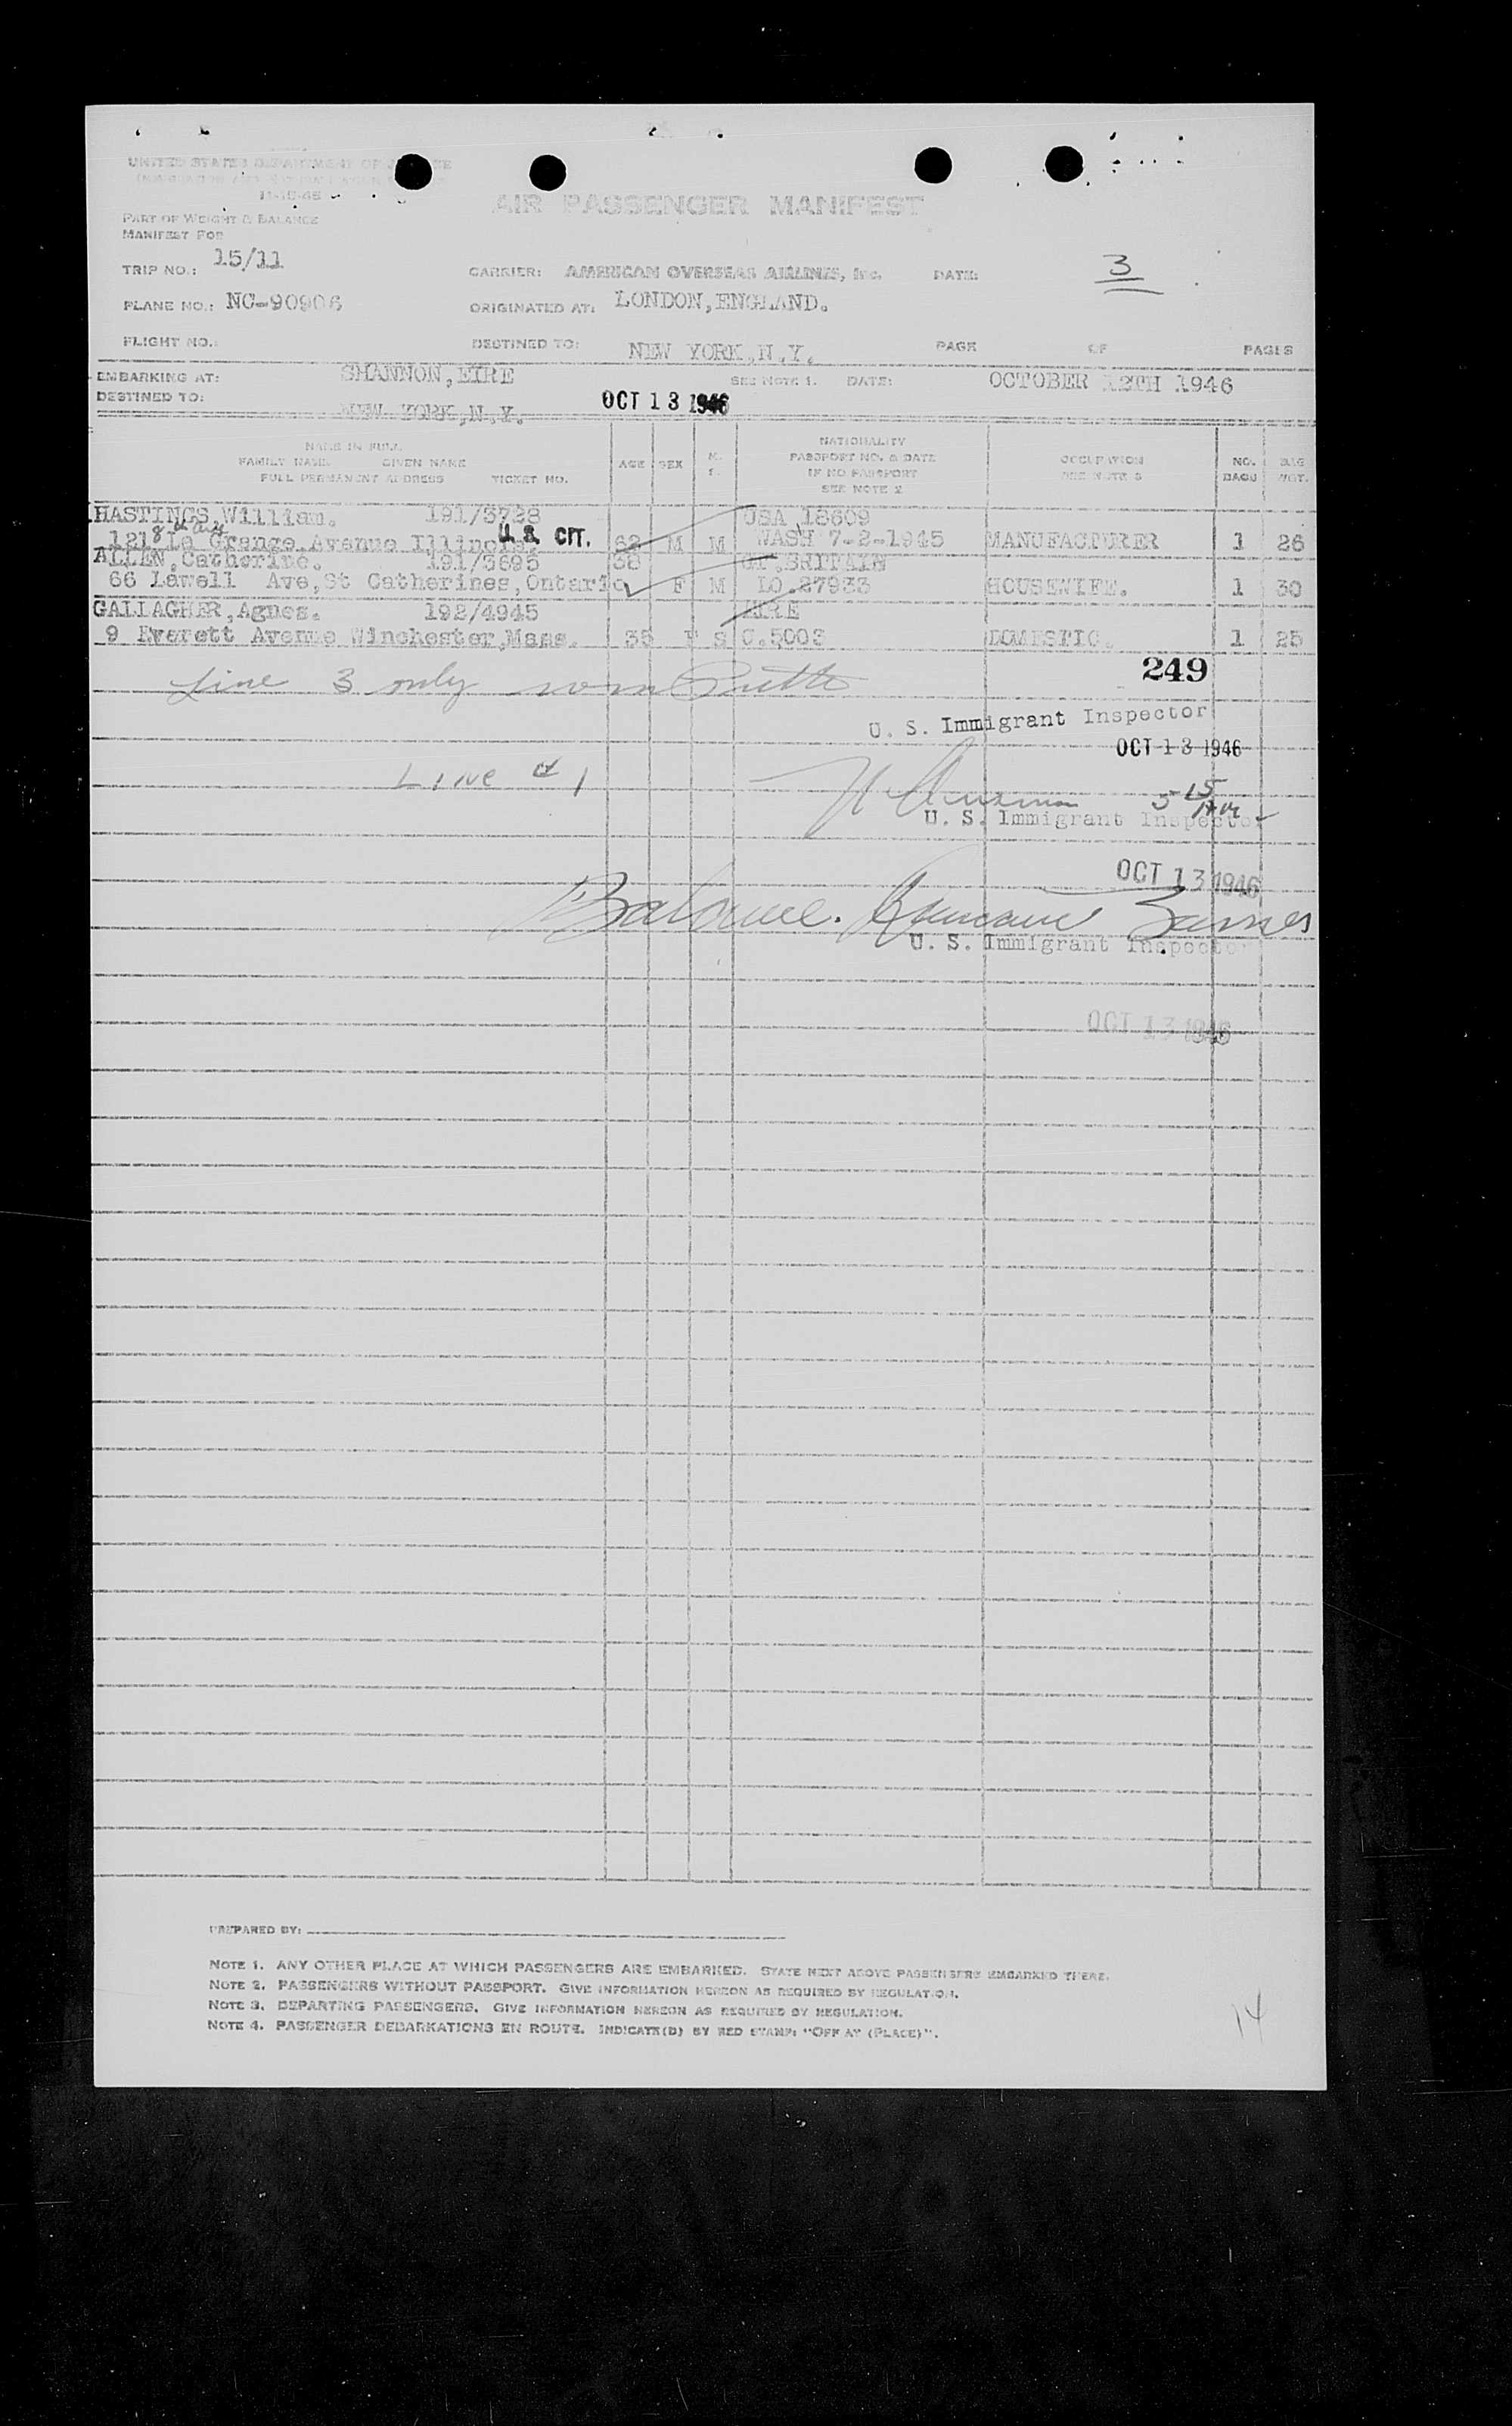 UNITED STATES DEPARTMENT OF JUSTICE
11-15-45
AIR PASSENGER MANIFEST
PART OF WEIGHT & BALANCE
MANIFEST FOR
TRIP NO.: 15/11 CARRIER: AMERICAN OVERSEAS AIRLINES, Inc. DATE: 3
PLANE NO.: NC-90906 ORIGINATED AT: LONDON,ENGLAND.
FLIGHT NO.: DESTINED TO: NEW YORK,N.Y. PAGE OF PAGES
EMBARKING AT: SHANNON,EIRE SEE NOTE 1. DATE: OCTOBER 12TH 1946
DESTINED TO: NEW YORK,N.Y. OCT 13 1946
NAME IN FULL
FAMILY NAME GIVEN NAME
FULL PERMANENT ADDRESS TICKET NO.
AGE SEX M. S.
NATIONALITY
PASSPORT NO. & DATE
IF NO PASSPORT
SEE NOTE 2
OCCUPATION
SEE NOTE 3
NO. BAGS
BAG WGT.
HASTINGS,William. 191/3728 USA 18609
121 La Grange Avenue Illinois. U.S. CIT. 62 M M WASH 7-2-1945 MANUFACTURER 1 26
ALLEN,Catherine. 191/3695 38 GT.BRITAIN
66 Lawell Ave,St Catherines,Ontario F M LO.27933 HOUSEWIFE. 1 30
GALLAGHER,Agnes. 192/4945 EIRE
9 Everett Avenue Winchester,Mass. 35 F S C.5008 DOMESTIC. 1 25
249
Line 3 only
U. S. Immigrant Inspector
OCT 13 1946
LINE # 1
5 15
U. S. Immigrant Inspector
OCT 13 1946
Balance.
U. S. Immigrant Inspector
OCT 13 1946
PREPARED BY:
NOTE 1. ANY OTHER PLACE AT WHICH PASSENGERS ARE EMBARKED. STATE NEXT ABOVE PASSENGERS EMBARKED THERE.
NOTE 2. PASSENGERS WITHOUT PASSPORT. GIVE INFORMATION HEREON AS REQUIRED BY REGULATION.
NOTE 3. DEPARTING PASSENGERS. GIVE INFORMATION HEREON AS REQUIRED BY REGULATION.
NOTE 4. PASSENGER DEBARKATIONS EN ROUTE. INDICATE(D) BY RED STAMP: "OFF AT (PLACE)".
14